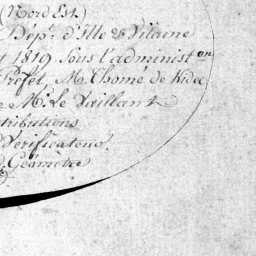 (Nord Est.)
Dépt. d'Ille & Vilaine
1819 Sous l'administon
Préfet, M. Thomé de
Mr. Le Vaillant
tributions
Vérificateur
Géomètre